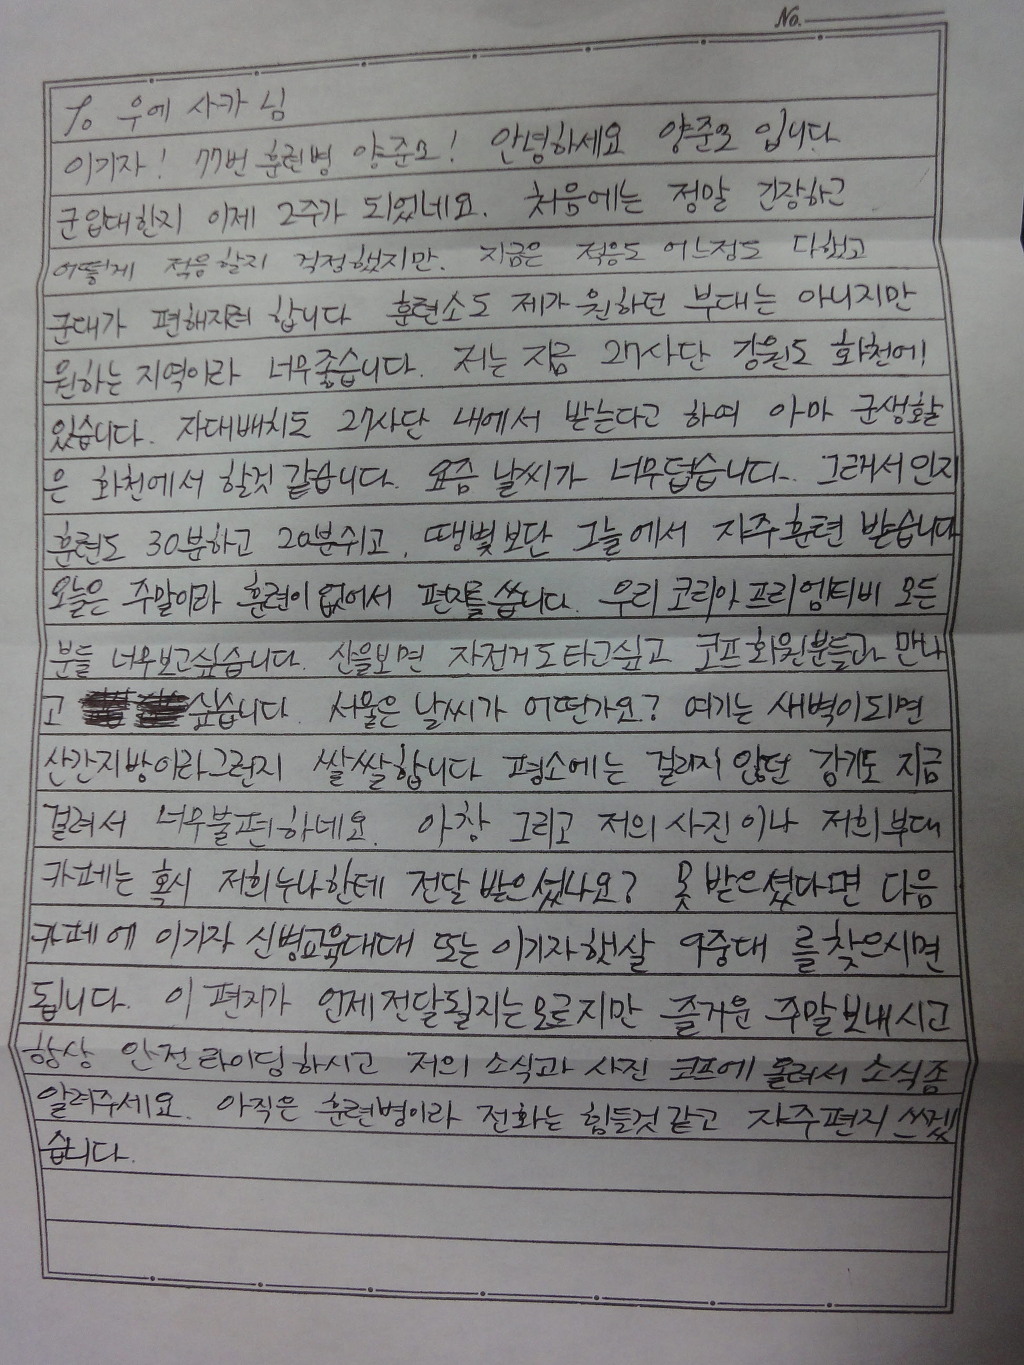 No.
To 우에 사카 님
이기자! 77번 훈련병 양준모! 안녕하세요 양준모 입니다
군입대한지 이제 2주가 되었네요. 처음에는 정말 긴장하고
어떻게 적응할지 걱정했지만. 지금은 적응도 어느정도 다했고
군대가 편해지려 합니다 훈련소도 제가 원하던 부대는 아니지만
원하는 지역이라 너무좋습니다. 저는 지금 27사단 강원도 화천에!
있습니다. 자대배치도 27사단 내에서 받는다고 하여 아마 군생활
은 화천에서 할것 같습니다. 요즘 날씨가 너무덥습니다. 그래서인지
훈련도 30분하고 20분쉬고, 땡볓보단 그늘에서 자주훈련 받습니다
오늘은 주말이라 훈련이 없어서 편지를 씁니다. 우리 코리아 프리엠티비 모든
분들 너무보고싶습니다. 산을보면 자전거도타고싶고 코프회원분들과 만나
고 싶습니다. 서울은 날씨가 어떤가요? 여기는 새벽이되면
산간지방이라그런지 쌀쌀합니다 평소에는 걸리지 않던 감기도 지금
걸려서 너무불편하네요. 아참 그리고 저의 사진이나 저희부대
카페는 혹시 저희누나한테 전달 받으셨나요? 못 받으셨다면 다음
카페에 이기자 신병교육대대 또는 이기자햇살 9중대 를 찾으시면
됩니다. 이 편지가 언제전달될지는모르지만 즐거운 주말보내시고
항상 안전 라이딩하시고 저의 소식과 사진 코프에 올려서 소식좀
알려주세요. 아직은 훈련병이라 전화는 힘들것 같고 자주편지 쓰겠
습니다.